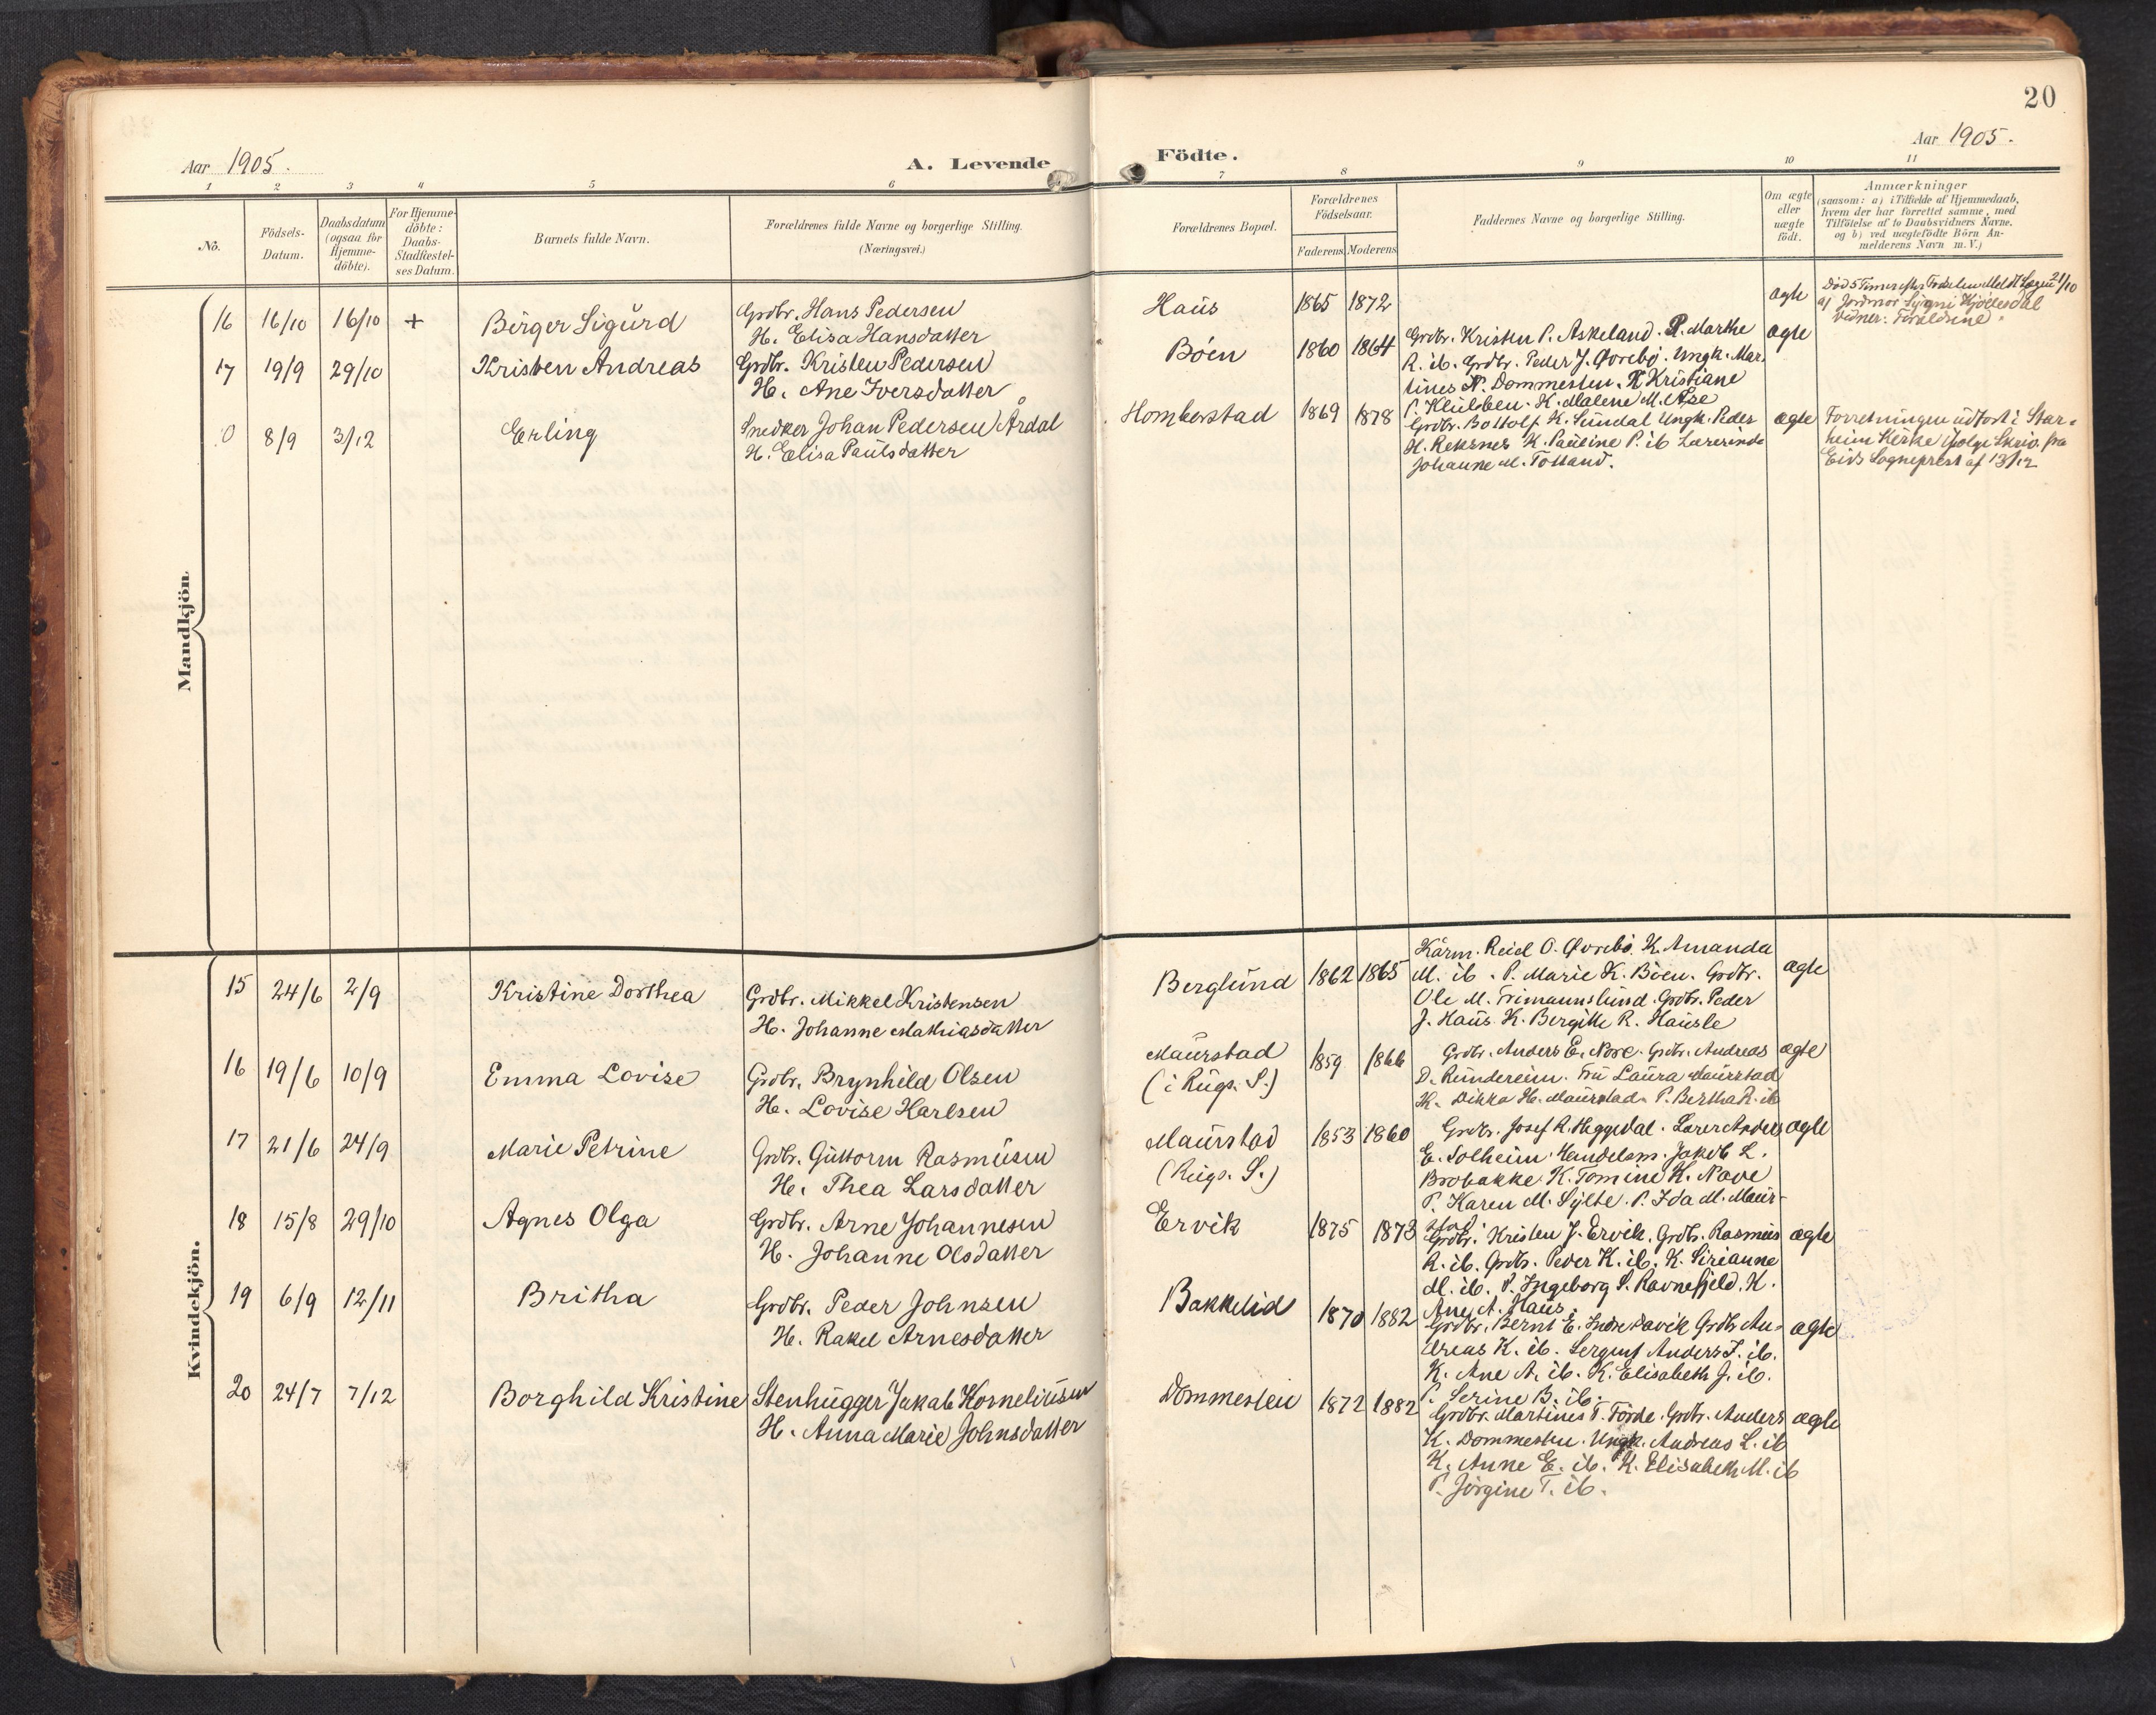 20
Aar 1905.
A. Levende
Födte.
Aar 1905.
1 2 3 4 5 6 7 8 9 10 11
No.
Födsels-
Datum.
Daabsdatum
(ogsaa for
Hjemme-
döbte).
For Hjemme-
döbte:
Daabs-
Stadfæstel-
ses Datum.
Barnets fulde Navn.
Forældrenes fulde Navne og borgerlige Stilling.
(Næringsvei.)
Forældrenes Bopæl.
Forældrenes
Födselsaar.
Faderens Moderens
Faddernes Navne og borgerlige Stilling.
Om ægte
eller
uægte
födt.
Anmærkninger
(saasom: a) i Tilfælde af Hjemmedaab,
hvem der har forrettet samme, med
Tilföielse af to Daabsvidners Navne.
og b) ved uægtefödte Börn An-
melderens Navn m. V.)
Mandkjön.
16 16/10 16/10 + Birger Sigurd
Grdbr. Hans Pedersen
H. Elisa Hansdatter
Haus 1865 1872
ægte
Død 5 Timer efter Fødselen Meldt 21/10
af Jordmor Hjelledal
Vidner: Forældrene.
17 19/9 29/10 Kristen Andreas
Grdbr. Kristen Pedersen
H. Ane Iversdatter
Bøen 1860 1864
Grdbr. Kristen P. Askeland. P. Marthe
R. ib. Grdbr. Peder J. Øvrebø. Ungk. Mar-
tines N. Dommesten. K Kristiane
P. K. Malene M. Åse
ægte
8/9 3/12 Erling
Snedker Johan Pedersen Årdal
H. Elisa Paulsdatter
Homberstad 1869 1878
Grdbr. Bottolf K. Sundal Ungk. Peder
H. Reksnes K. Pauline P. ib Lærerinde
Johanne M. Totland.
ægte
Forretningen udført i Star-
heim Kirke ifølge Skriv. fra
Eids Sogneprest af 13/12
Kvindekjön.
15 24/6 2/9 Kristine Dorthea
Grdbr. Mikkel Kristensen
H. Johanne Mathiasdatter
Berglund 1862 1865
Kårm. Reiel O. Øvrebø. K. Amanda
M. ib. P. Marie K. Bøen. Grdbr.
Ole M. Frimannslund. Grdbr. Peder
J. Haus. K. Bergitte R. Hausle
ægte
16 19/6 10/9 Emma Lovise
Grdbr. Brynhild Olsen
H. Lovise Karlsen
Maurstad
(i Rugs. S.)
1859 1866
Grdbr. Anders E. Nore. Grdbr. Andreas
D. Rundereim. Fru Laura Maurstad
K. Dikka H. Maurstad. P. Bertha R. ib
ægte
17 21/6 24/9 Marie Petrine
Grdbr. Guttorm Rasmusen
H. Thea Larsdatter
Maurstad
(Rugs. S.)
1853 1860
Grdbr. Josef R. Heggedal. Lærer Anders
E. Solheim. Handelsm. Jakob L.
Brobakke. K. Tomine K. Nave
P. Karen M. Sylte. P. Ida M. Maur-
stad.
ægte
18 15/8 29/10 Agnes Olga
Grdbr. Arne Johannesen
H. Johanne Olsdatter
Ervik 1875 1873
Grdbr. Kristen J. Ervik. Grdbr. Rasmus
R. ib. Grdbr. Peder K. ib. K. Sirianne
M. ib. P. Ingeborg S. Ravnefjeld. K.
Ane A. Haus.
ægte
19 6/9 12/11 Britha
Grdbr. Peder Johnsen
H. Rakel Arnesdatter
Bakkelid 1870 1882
Grdbr. Bernt E. Indrehavik Grdbr An-
dreas K. ib. Sergent Anders J. ib.
K. Ane A. ib. K. Elisabeth J. ib.
P. Serine B. ib.
ægte
20 24/7 7/12 Borghild Kristine
Stenhugger Jakab Korneliusen
H. Anna Marie Johnsdatter
Dommesten 1872 1882
Grdbr. Martines T. Förde. Grdbr. Anders
K. Dommesten. Ungk. Andreas L. ib
K. Anne E. ib. K. Elisabeth M. ib
P. Jörgine T. ib.
ægte